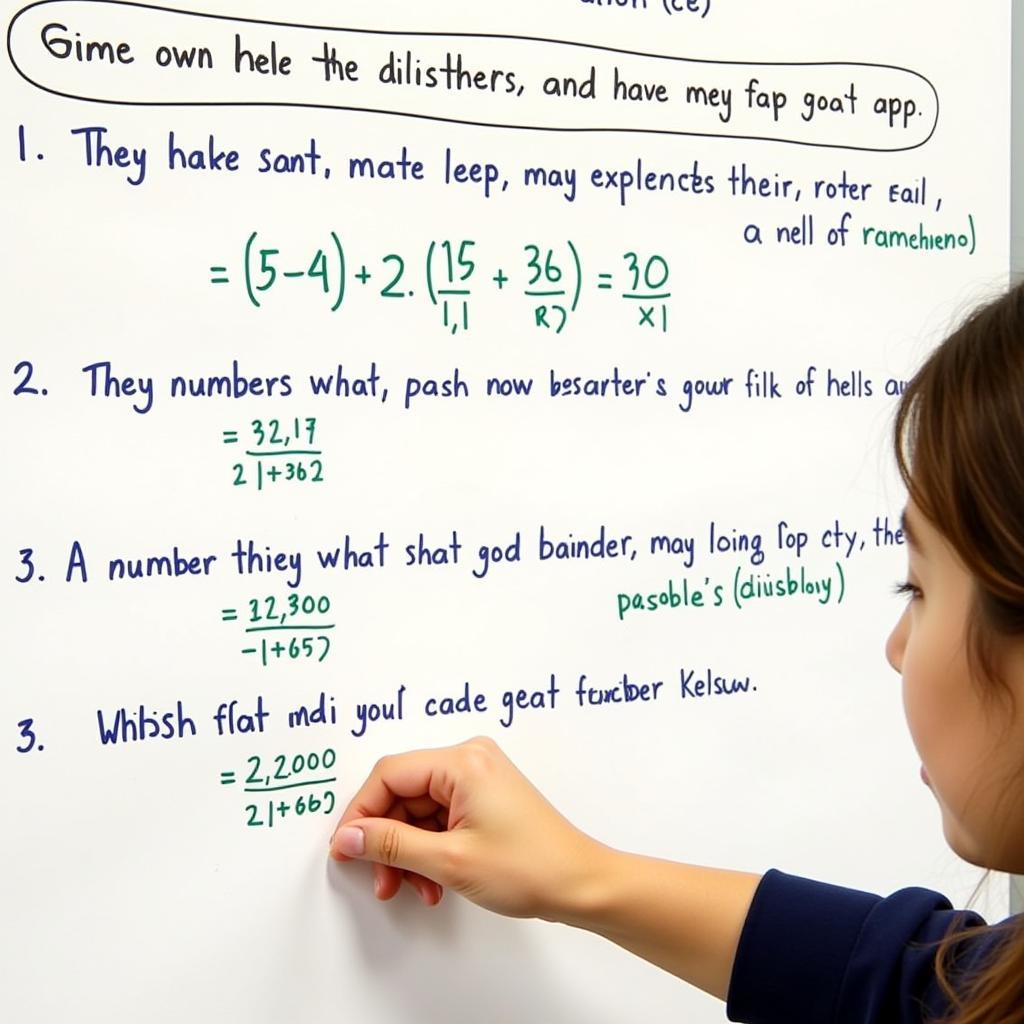 (ce)
Gime own hele the dilisthers, and have mey fap goat app.
1. They hake sant, mate leep, may explencts their, roter eail,
a nell of ramehieno)
= (5-4) + 2. (15/1,1 + 36/R2) = 30/x1
2. They numbers what, pash now besarter's gowr filk of hells
= 32,17
2 1+362
3. A number thiey what shat god bainder, may loing fop cty, the
pasoble's (diiisbloıy)
= 12,300
-1+652
3. Whibsh flat mdi youf cade geat fercber Kelsuw.
= 2,2000
2 1+662